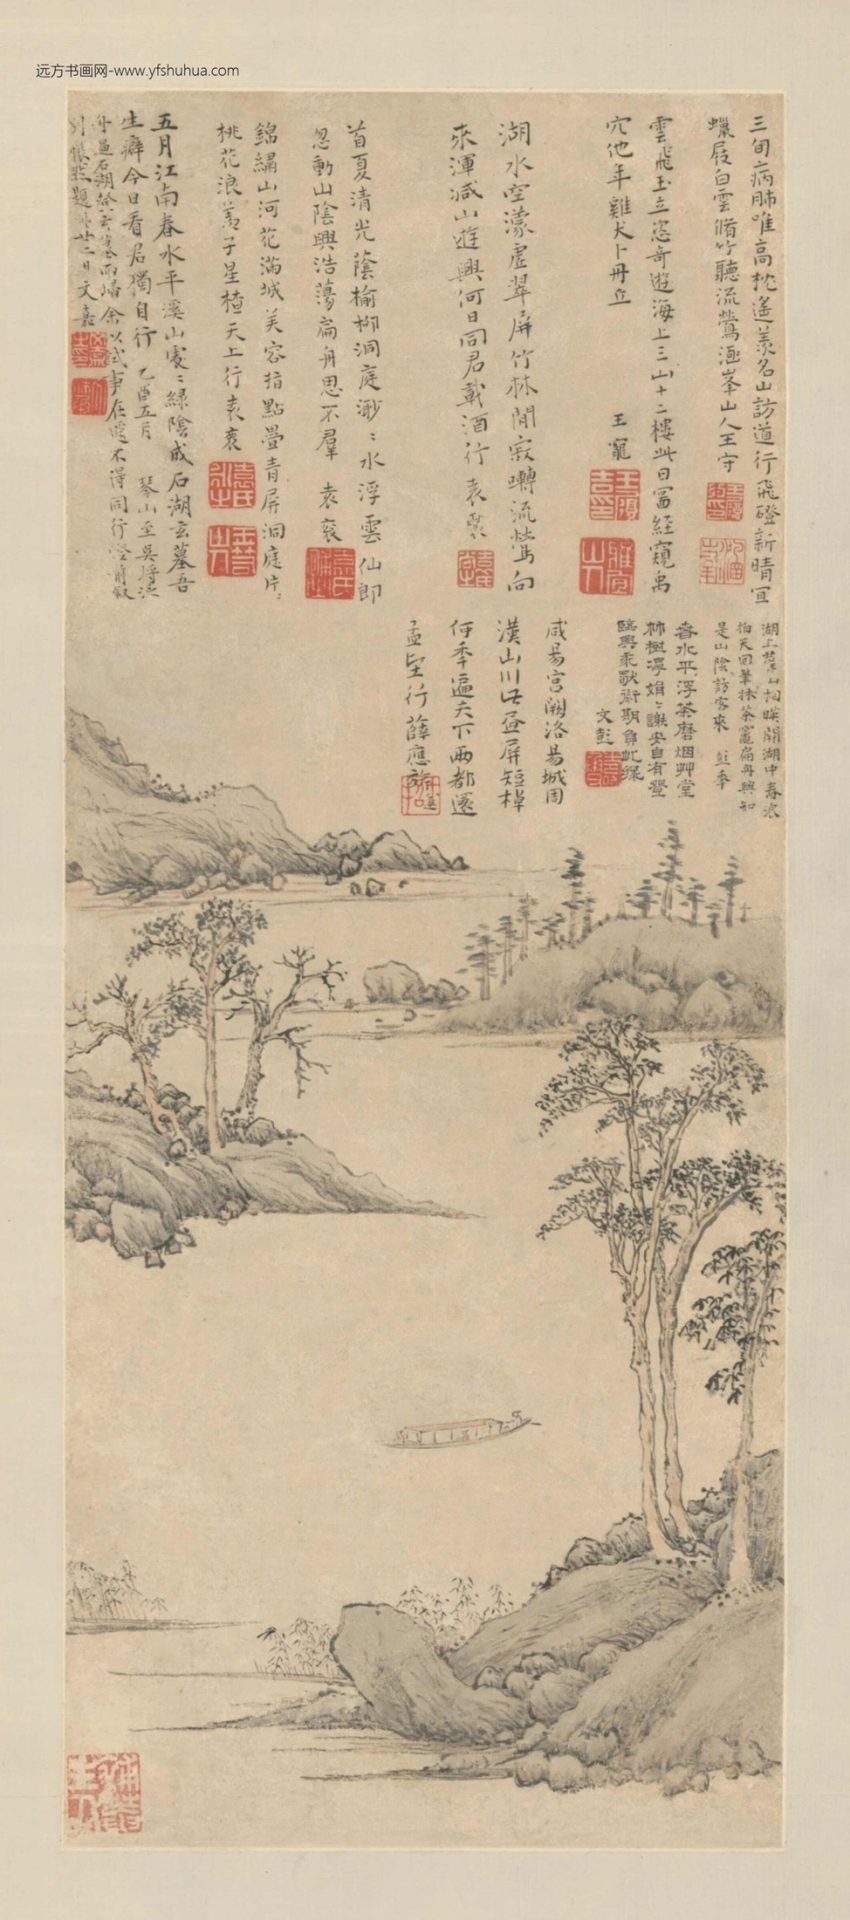 远方书画网-www.yfshuhua.com
三旬病肺唯高枕遙羨名山訪道行飛磴新晴宜
蠟屐白雲脩竹聽流鶯涵峯山人王守
雲飛玉立恣奇遊海上三山十二樓此日冨經窺禹
穴他年雞犬卜丹丘
王寵
湖水空濛虛翠屏竹林閒寂囀流鶯向
來渾減山遊興何日同君載酒行袁褧
首夏清光蔭榆柳洞庭渺〻水浮雲仙郎
忽動山陰興浩蕩扁舟思不羣 袁褧
錦繡山河花滿城美容指點疊青屏洞庭片〻
桃花浪羨子星楂天上行袁袠
五月江南春水平溪山處〻綠陰成石湖玄墓吾
生癖今日看君獨自行 乙酉五月
琴山至吳將
舟過石湖 玄墓而歸余以試事在邇不得同行
別悵然題 廿二日文嘉
湖上 山相暎開湖中春冰
拍天回筆牀茶竈扁舟興知
是山陰訪客來 彭年
春水平浮茶磨烟艸堂
林樾淨娟〻謝安自有登
臨興
文彭
咸昜宮闕洛昜城周
漢山川此晝屏短棹
何年遍天下兩都還
孟堅行薛應